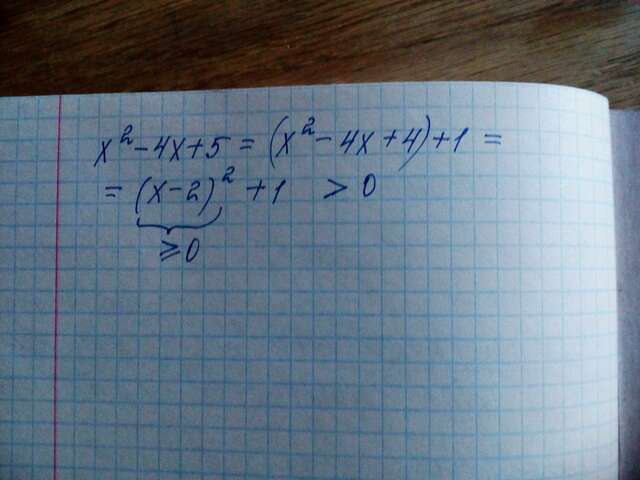 x² - 4x + 5 = (x² - 4x + 4) + 1 =
= (x - 2)² + 1 > 0
⩾ 0